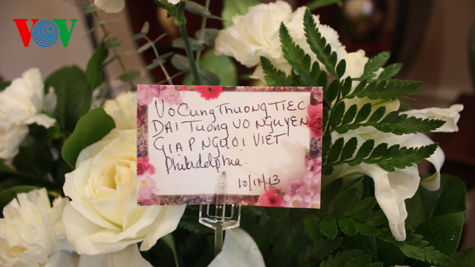 VOV
Vo Cung Thuong TIEC
DAI TUONG VO NGUYEN
GIAP NGUOI VIET
Philadelphia
10/11/13